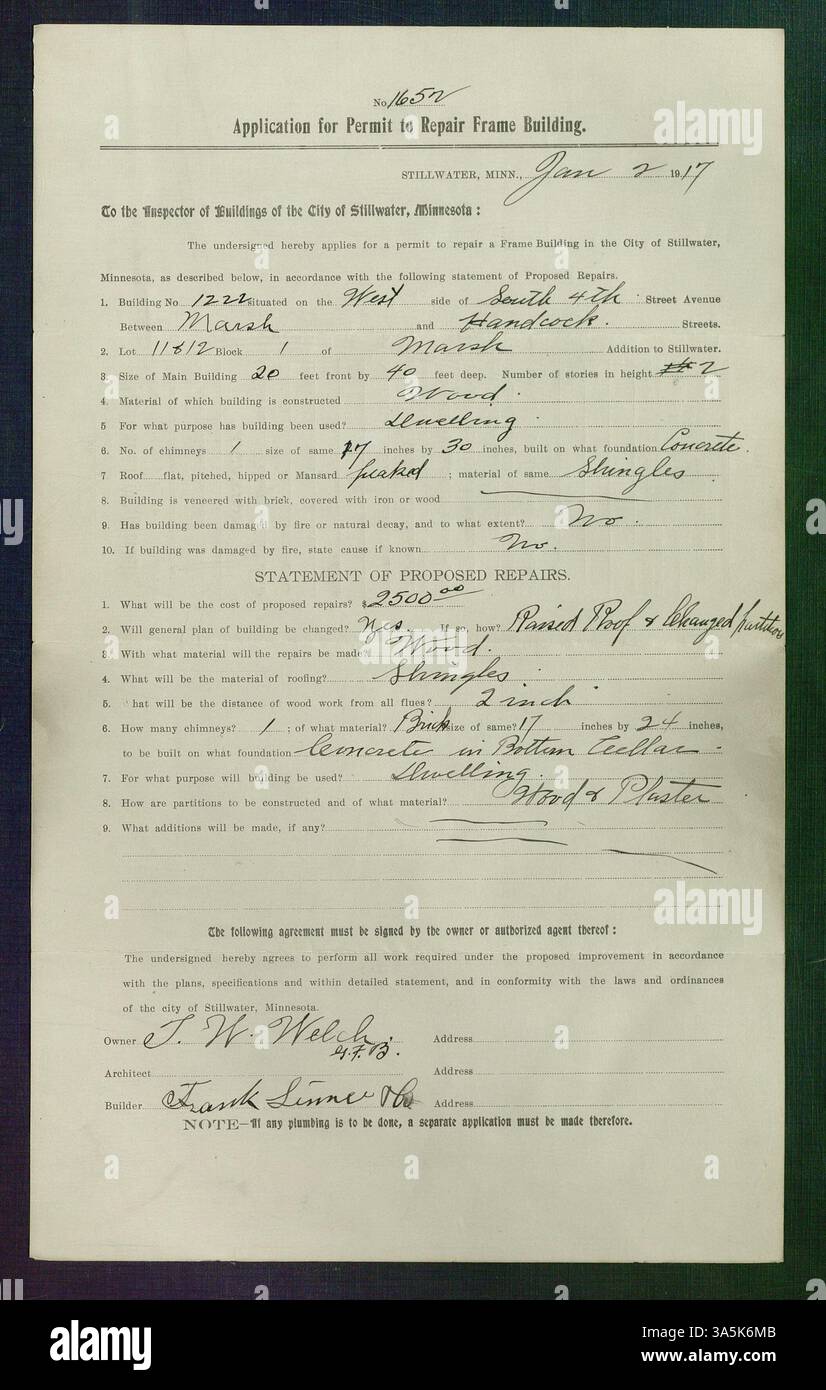 No. 1652
Application for Permit to Repair Frame Building.
STILLWATER, MINN., Jan 2 1917
To the Inspector of Buildings of the City of Stillwater, Minnesota :
The undersigned hereby applies for a permit to repair a Frame Building in the City of Stillwater,
Minnesota, as described below, in accordance with the following statement of Proposed Repairs.
1. Building No 1222 situated on the West side of South 4th Street Avenue
Between Marsh and Handcock. Streets.
2. Lot 11 & 12 Block 1 of Marsh Addition to Stillwater.
3 Size of Main Building 20 feet front by 40 feet deep. Number of stories in height 2
4. Material of which building is constructed Wood.
5 For what purpose has building been used? Dwelling
6. No. of chimneys 1 size of same 17 inches by 30 inches, built on what foundation Concrete.
7 Roof flat, pitched, hipped or Mansard peaked ; material of same Shingles
8. Building is veneered with brick, covered with iron or wood
9. Has building been damaged by fire or natural decay, and to what extent? No.
10. If building was damaged by fire, state cause if known No.
STATEMENT OF PROPOSED REPAIRS.
1. What will be the cost of proposed repairs? $2500.00
2. Will general plan of building be changed? Yes. If so, how? Raised Roof & Changed partitions
3. With what material will the repairs be made? Wood.
4. What will be the material of roofing? Shingles
5. hat will be the distance of wood work from all flues? 2 inch
6. How many chimneys? 1 ; of what material? Brick size of same? 17 inches by 24 inches,
to be built on what foundation Concrete in Bottom Cellar.
7. For what purpose will building be used? Dwelling.
8. How are partitions to be constructed and of what material? Wood & Plaster
9. What additions will be made, if any?
The following agreement must be signed by the owner or authorized agent thereof :
The undersigned hereby agrees to perform all work required under the proposed improvement in accordance
with the plans, specifications and within detailed statement, and in conformity with the laws and ordinances
of the city of Stillwater, Minnesota.
Owner T. W. Welch. Address
G.F.B.
Architect Address
Builder Frank Linner & Co Address
NOTE—If any plumbing is to be done, a separate application must be made therefore.
alamy
Image ID: 3A5K6MB
www.alamy.com